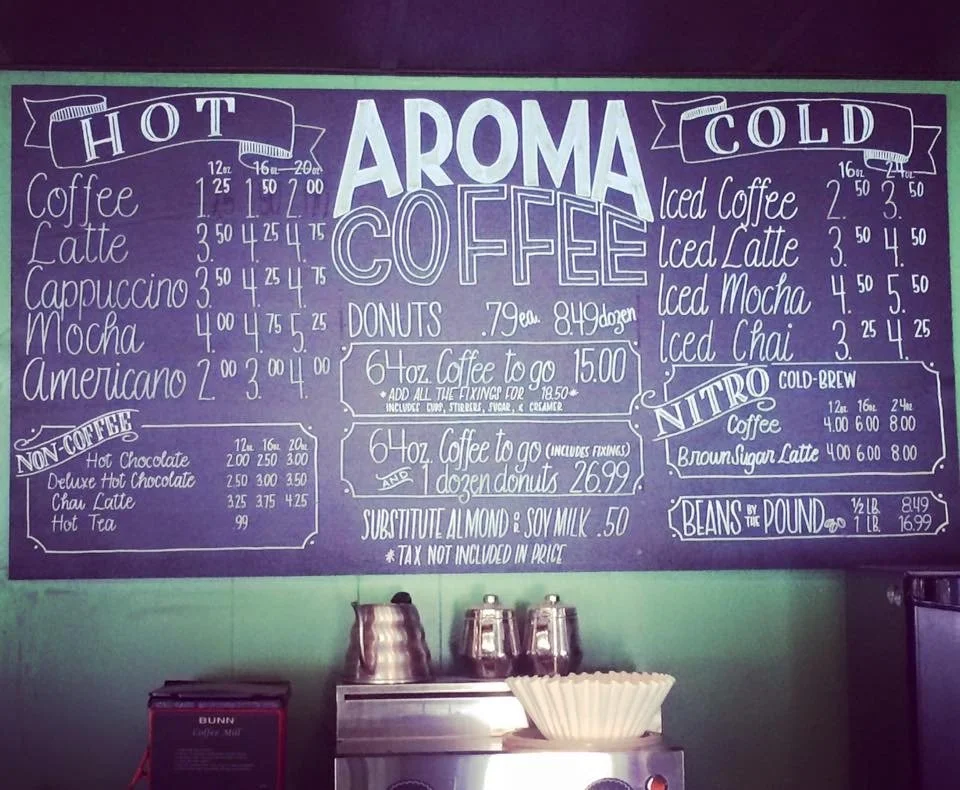 HOT
12oz. 16oz. 20oz.
Coffee 1.25 1.50 2.00
Latte 3.50 4.25 4.75
Cappuccino 3.50 4.25 4.75
Mocha 4.00 4.75 5.25
Americano 2.00 3.00 4.00
NON-COFFEE
12oz. 16oz. 20oz.
Hot Chocolate 2.00 2.50 3.00
Deluxe Hot Chocolate 2.50 3.00 3.50
Chai Latte 3.25 3.75 4.25
Hot Tea .99
AROMA
COFFEE
DONUTS .79ea. 8.49dozen
64oz. Coffee to go 15.00
*ADD ALL THE FIXINGS FOR 18.50*
INCLUDES CUPS, STIRRERS, SUGAR, & CREAMER
64oz. Coffee to go (INCLUDES FIXINGS)
AND 1 dozen donuts 26.99
SUBSTITUTE ALMOND OR SOY MILK .50
*TAX NOT INCLUDED IN PRICE
COLD
16oz. 24oz.
Iced Coffee 2.50 3.50
Iced Latte 3.50 4.50
Iced Mocha 4.50 5.50
Iced Chai 3.25 4.25
NITRO COLD-BREW
12oz. 16oz. 24oz.
Coffee 4.00 6.00 8.00
Brown Sugar Latte 4.00 6.00 8.00
BEANS BY THE POUND ½ LB. 8.49
1 LB. 16.99
BUNN
Coffee Mill